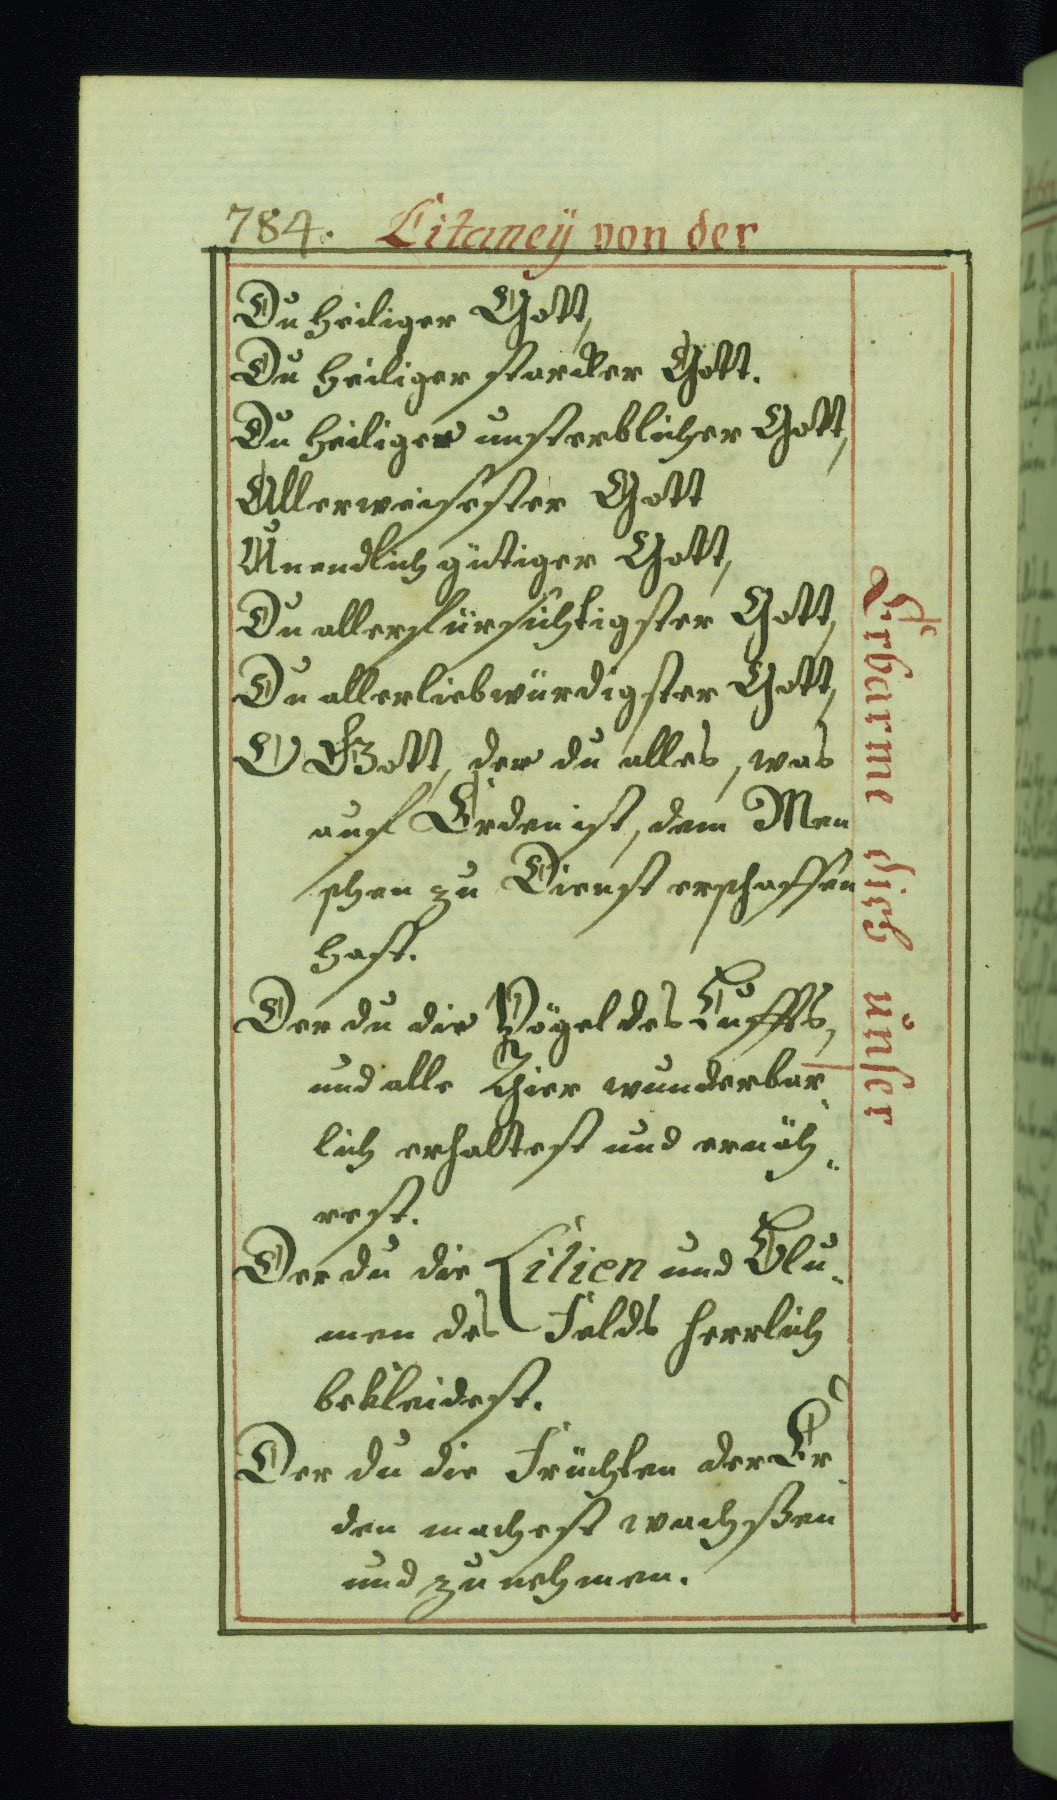 784. Litaneÿ von der
Du heiliger Gott,
Du heiliger starcker Gott.
Du heiliger unsterblicher Gott,
Allerweisester Gott
Unendlich gütiger Gott,
Du allerfürsichtigster Gott,
Du allerliebwürdigster Gott,
O Gott, der du alles, was
auf Erden ist, dem Men
schen zu Dienst erschaffen
hast.
Der du die Vögel des Luffts,
und alle Thier wunderbar„
lich erhaltest und ernäh„
rest.
Der du die Lilien und Blu„
men des Felds herrlich
bekleidest.
Der du die Früchten der Er„
den machest wachßen
und zunehmen.
Erbarme dich unser